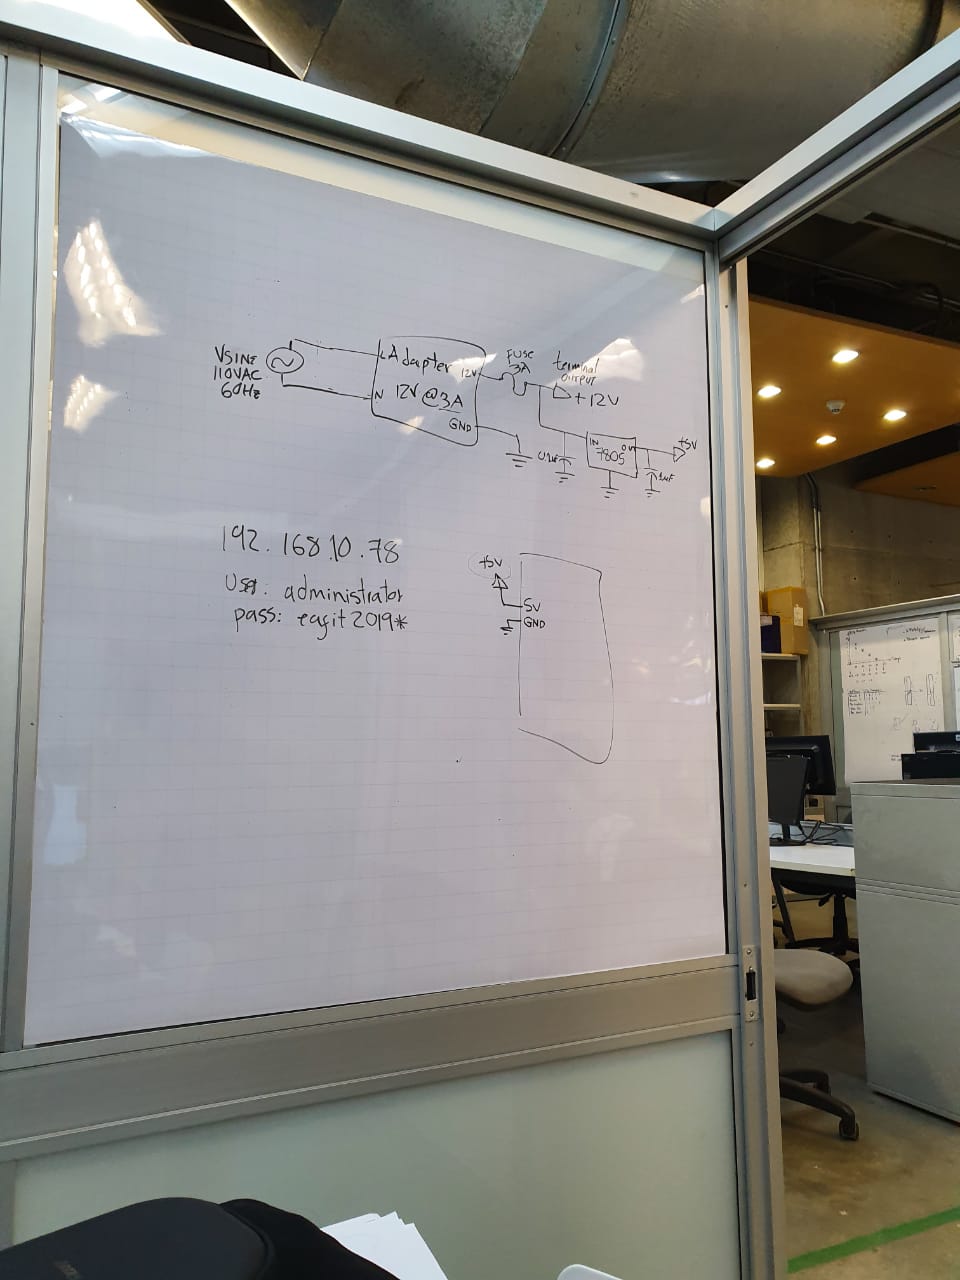 VSINE
110VAC
60Hz
L Adapter 12V
N 12V @ 3A
GND
FUSE
3A
terminal
OUTPUT
+12V
IN
7805
+5V
1uF
192.168.10.78
User: administrator
pass: eafit2019*
+5V
5V
GND